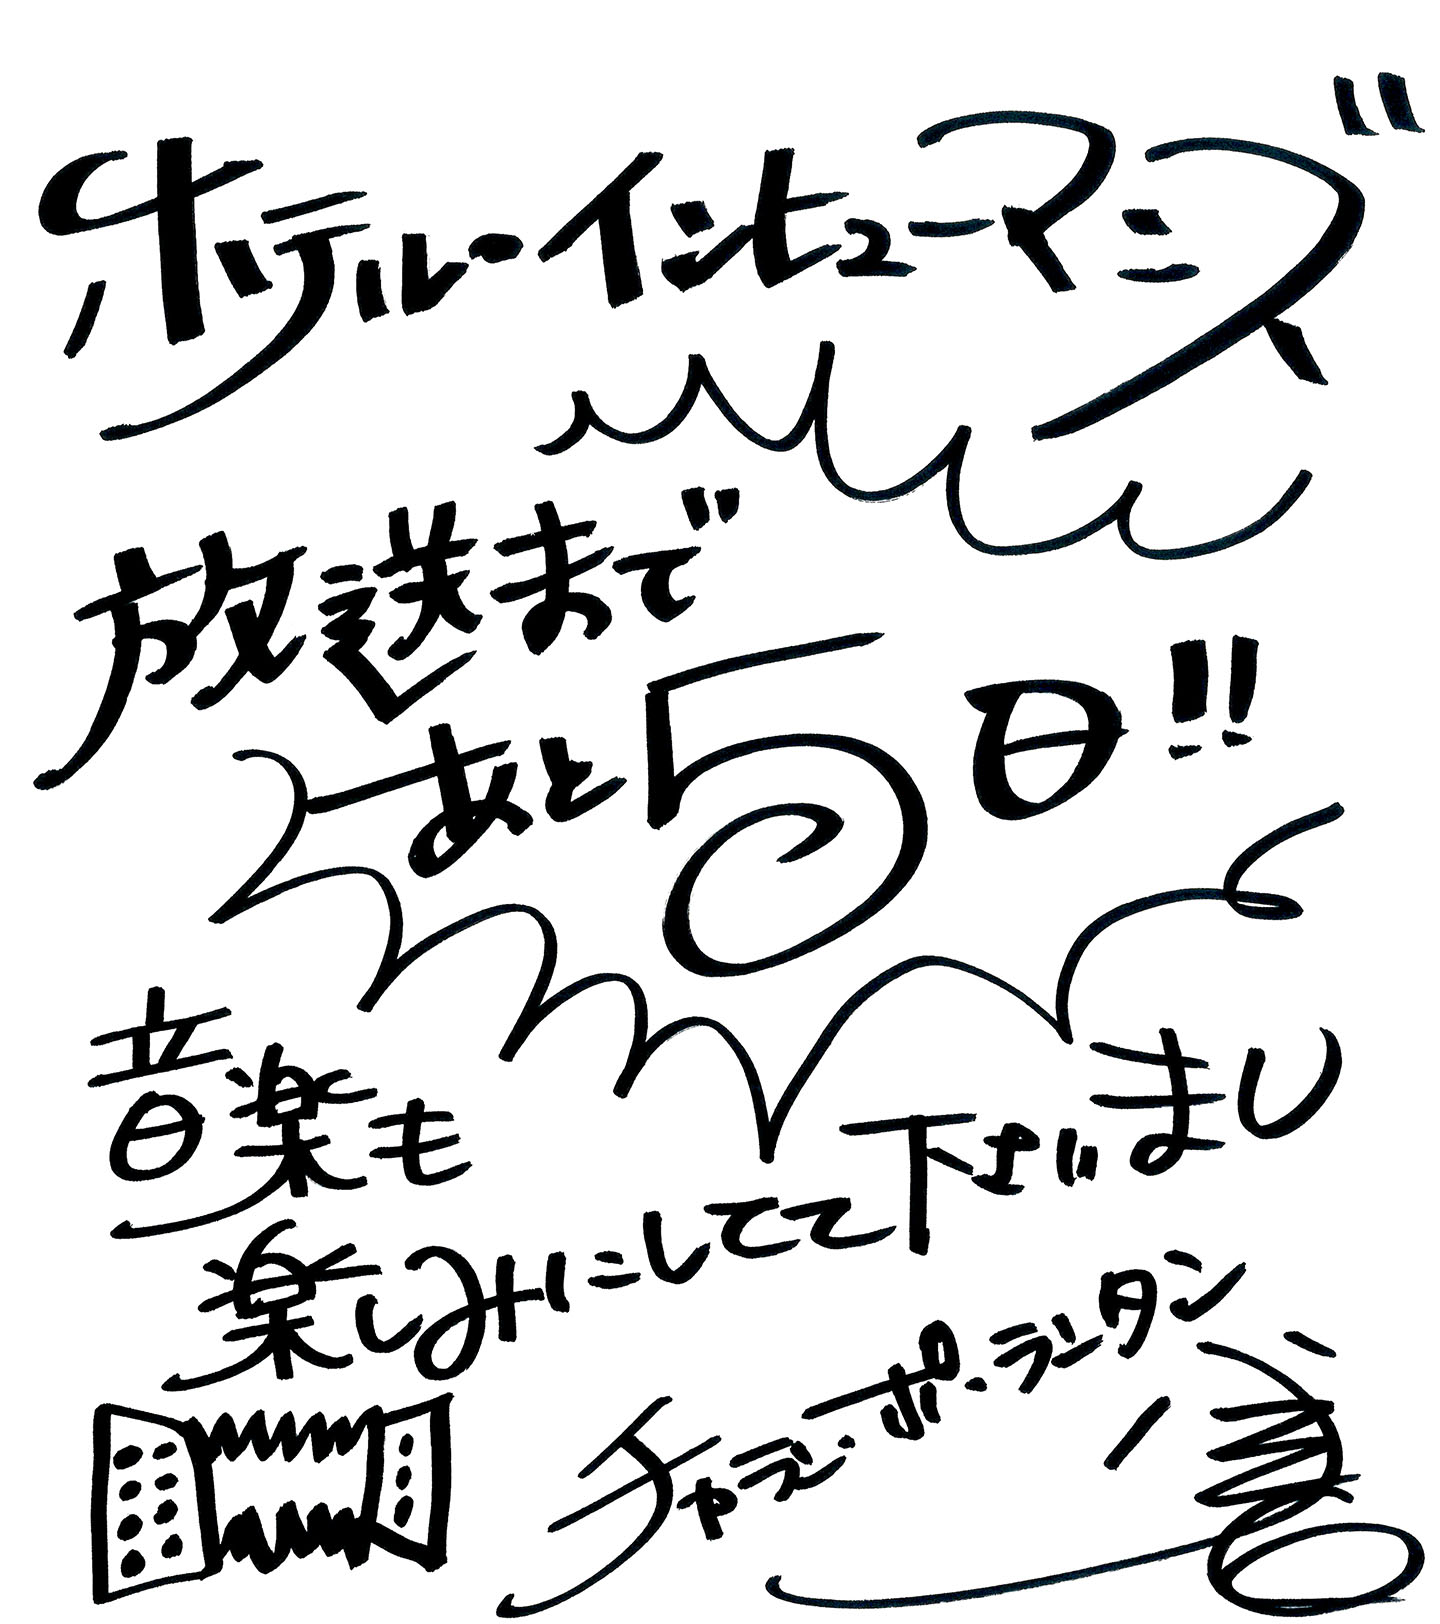 ホテルーインヒューマンズ
放送まで
あと5日!!
音楽も
楽しみにしてて下さいまし
チャラン・ポ・ランタン